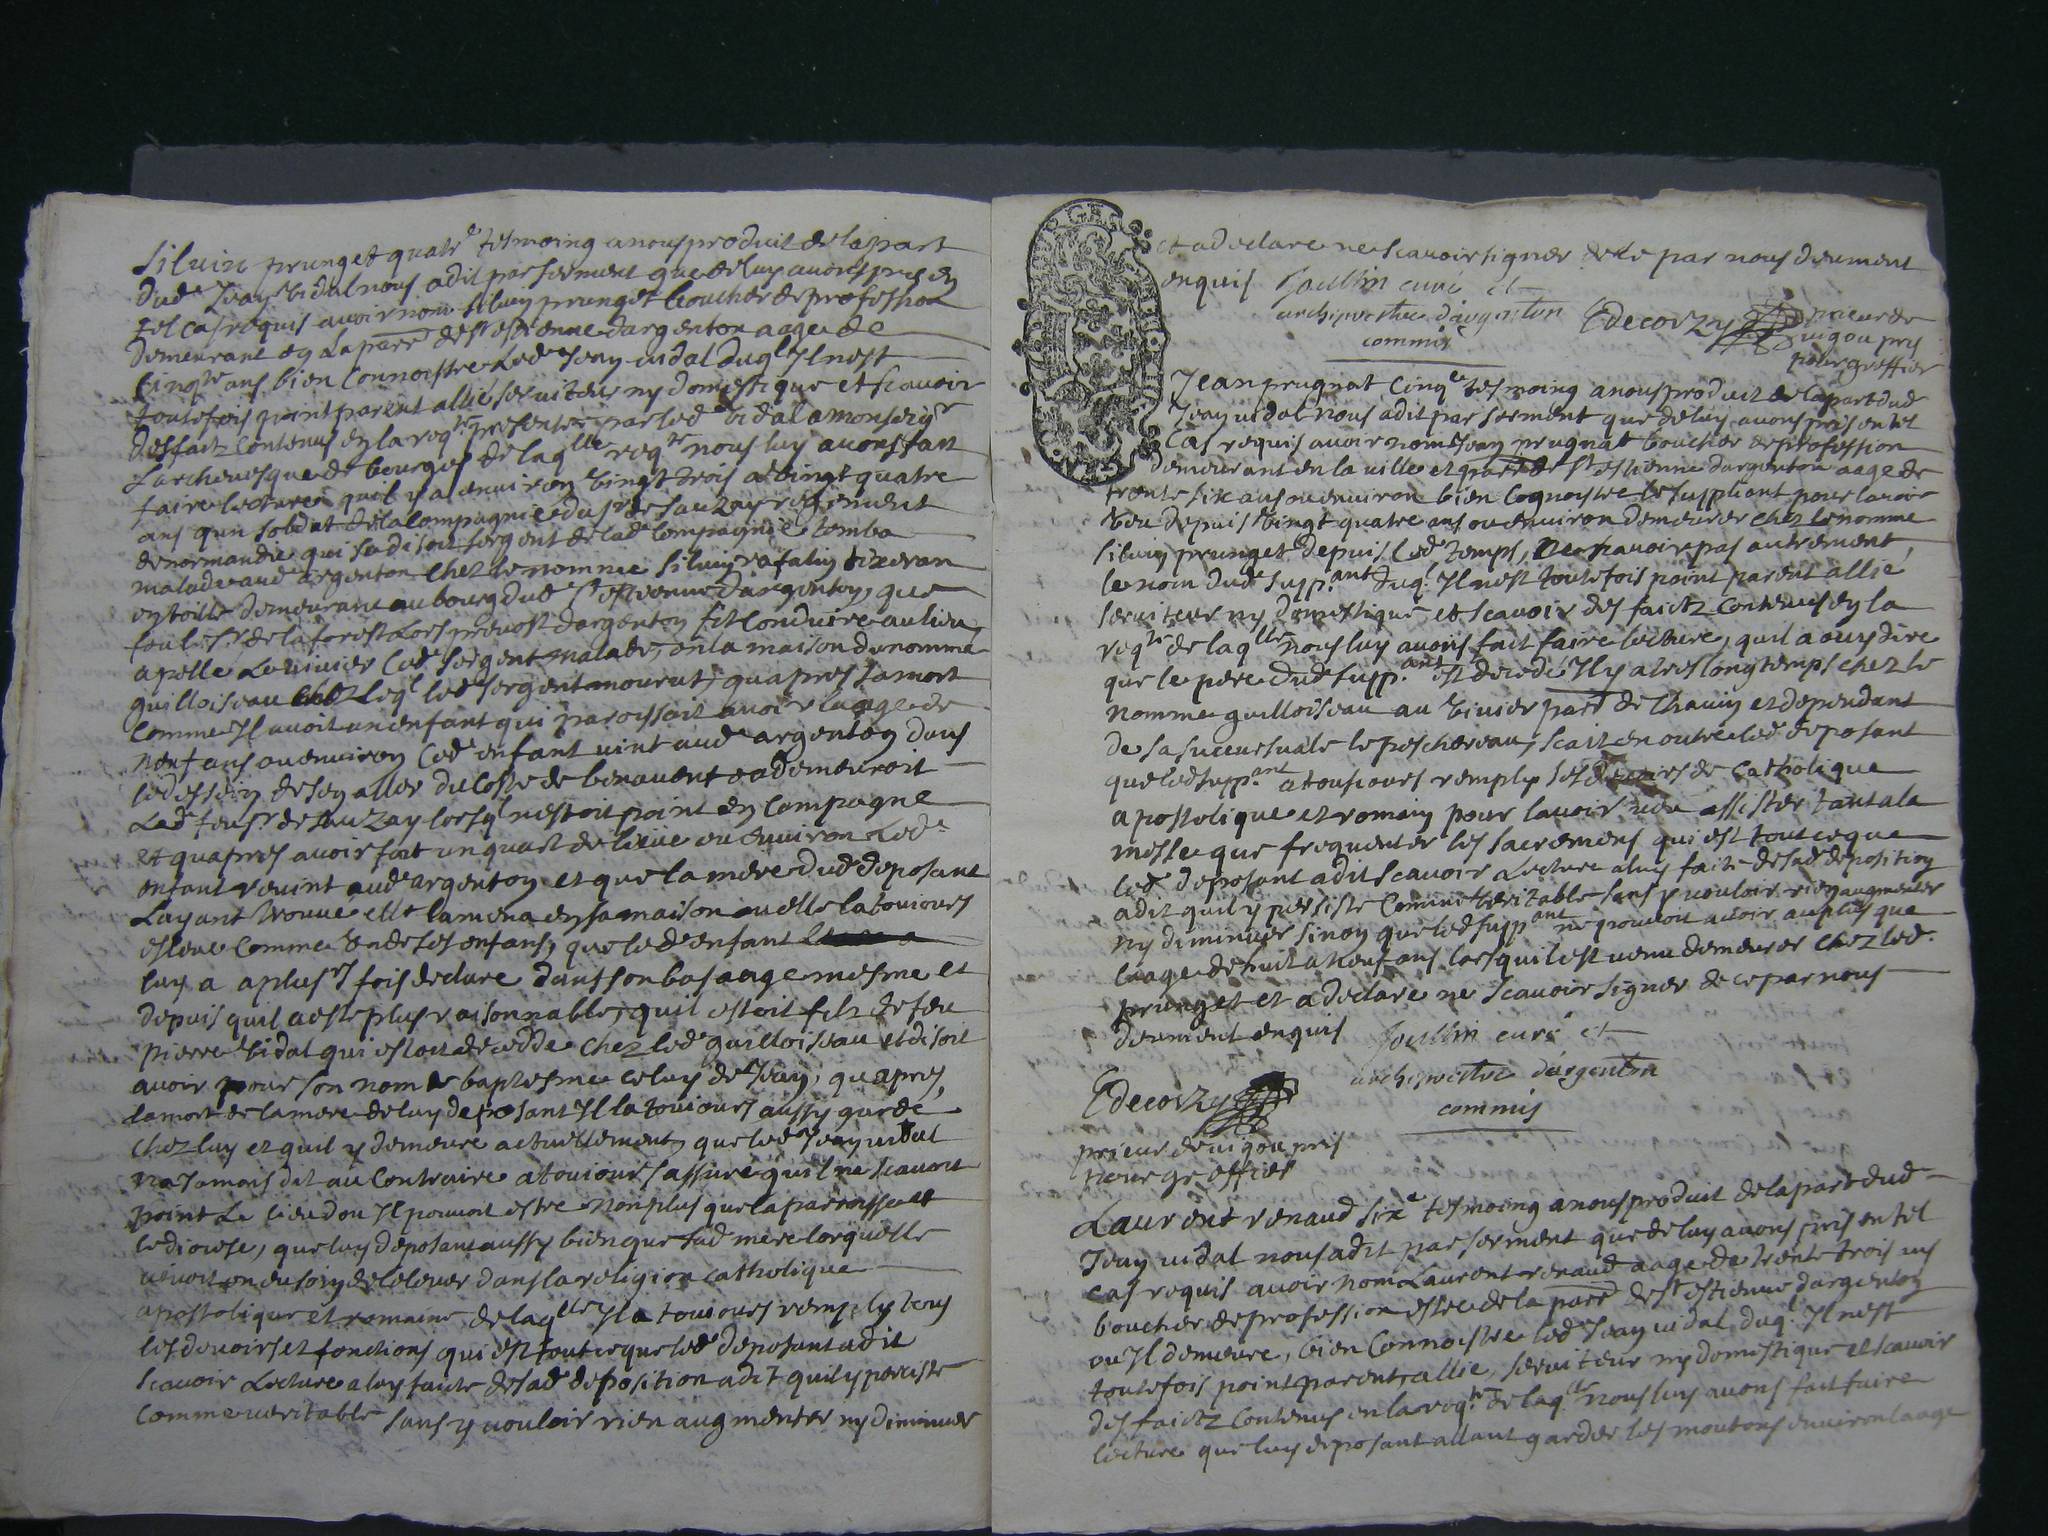 Siluin prunget quatr.e tesmoing a nous produit de la part
dud. Jean vidal nous a dit par serment que de luy auons pris en
tel cas requis auoir nom siluin prunget boucher de profession
demeurant en la parr. de st estienne dargenton aage de
cinq.te ans bien connoistre led. Jean vidal duql Il nest
toutefois point parent allié seruiteur ny domestique et scauoir
des faitz contenus en la reqte presentee par led. vidal a monseigr
Larcheuesque de bourges de laqlle reqte nous luy auons fait
faire lecture quil y a enuiron vingt trois a vingt quatre
ans qun soldat de la compagnie du sr de sauzay regiment
de normandie qui se disoit sergent de lad. compagnie tomba
malade aud. argenton chez le nomme siluin rafalin tixeran
en toille demeurant au bourg dud. st estienne dargenton, que
feu le sr de la forest lors preuost dargenton fit conduire au lieu
apelle Le viuier led. sergent malade, en la maison du nomme
guilloiseau chez leql led. sergent mourut, quapres sa mort
comme Il auoit un enfant qui paroissoit auoir laage de
neuf ans ou enuiron led. enfant uint aud. argenton dans
le dessein de sen aller du coste de benauent ou demeuroit
Led. feu sr de sauzay lorsql nestoit point en campagne
et quapres auoir fait un quart de lieue ou enuiron Led.
enfant reuint aud. argenton et que la mere dud. deposant
Layant trouue elle lamena en sa maison ou elle la toujours
esleue comme un de ses enfans, que led. enfant
luy a a plusrs fois declare dans son bas aage mesme et
depuis quil a este plus raisonnable, quil estoit fils de feu
pierre vidal qui estoit decedde chez led. guilloiseau et disoit
auoir pour son nom de baptesme celuy de Jean, quapres
la mort de la mere de luy deposant Il la toujours aussy garde
chez luy et quil y demeure actuellement, que led. Jean vidal
na jamais dit au contraire a toujours assure quil ne scauoit
point Le lieu dou Il pouuoit estre non plus que la parroisse et
le diocese, que luy deposant aussy bien que sad. mere lorquelle
viuoit on eu soin de leleuer dans la religion catholique
apostolique et romaine de laqlle Il a toujours remply tous
les deuoirs et fonctions qui est tout ce que led. deposant a dit
scauoir Lecture a luy faicte de sad. deposition a dit quil y persiste
comme veritable sans y vouloir rien augmenter ny diminuer
et a declare ne scauoir signer de ce par nous deument
enquis Joullin curé et
archiprestre d'argenton
commis
Edecorzay prieur de
uigou pris
pour greffier
Jean prugnat cinqe tesmoing a nous produit de la part dud.
Jean vidal nous a dit par serment que de luy auons pris en tel
cas requis auoir nom Jean prugnat boucher de profession
demeurant en la uille et parr. de st estienne dargenton aage de
trente six ans ou enuiron bien cognoistre le suppliant pour lauoir
veu depuis vingt quatre ans ou enuiron demeurer chez le nomme
siluin prunget depuis led. temps, ne scauoir pas autrement
le nom dud. suppant duql Il nest toutefois point parent allie
seruiteur ny domestique et scauoir des faictz contenus en la
reqte de laqlle nous luy auons fait faire lecture, quil a ouy dire
que le pere dud. suppant est decedé Il y a tres longtemps chez le
nomme guilloiseau au viuier parr. de Chauin et dependant
de sa sucursuale le peschereau, scait en outre led. deposant
que led. suppant a toujours remply ses deuoirs de catholique
apostolique et romain pour lauoir ueu assister tant a la
messe que frequenter les sacremens qui est tout ce que
led. deposant a dit scauoir Lecture a luy faite de sad. deposition
a dit quil y persiste comme veritable sans y vouloir rien augmenter
ny diminuer sinon que led. suppant ne pouuoit auoir au plus que
laage de huit a neuf ans lors quil est uenu demeurer chez led.
prunget et a declare ne scauoir signer de ce par nous
deument enquis Joullin curé et
archiprestre d'argenton
commis
Edecorzay
prieur de uigou pris
pour greffier
Laurent renaud sixe tesmoing a nous produit de la part dud.
Jean vidal nous a dit par serment que de luy auons pris en tel
cas requis auoir nom Laurent renaud aage de trente trois ans
boucher de profession estre de la parr. de st estienne dargenton
ou Il demeure, bien connoistre led. Jean vidal duql Il nest
toutefois point parent, allie, seruiteur ny domestique et scauoir
des faictz contenus en la reqte de laqlle nous luy auons fait faire
lecture que luy deposant allant garder les moutons enuiron laage